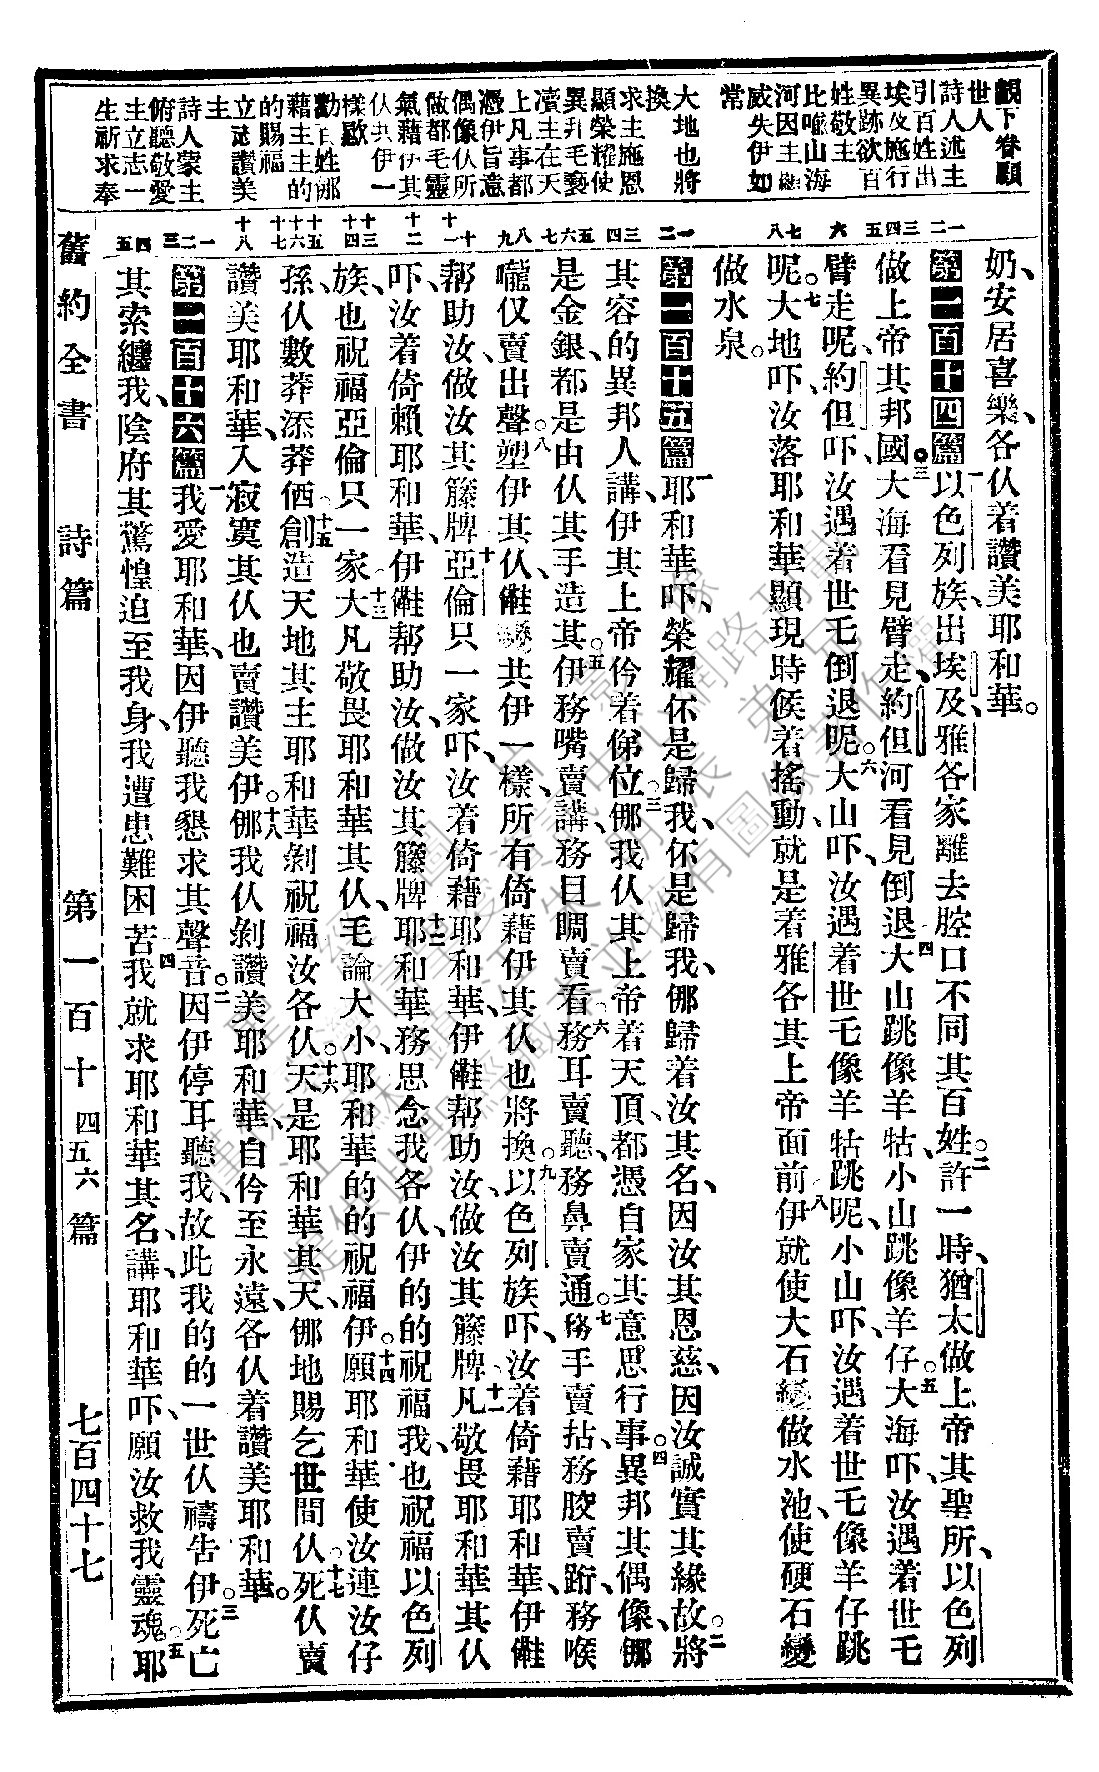 觀下眷顧
世人
詩人述主
引百姓出
埃及施行
異跡欲百
姓敬主
比喻山海
河因主顯
威失伊如
常
大地也將
換
求主施恩
顯榮耀使
異邦毛褻
瀆主在天
上凡事都
憑伊旨意
偶像仈所
做都毛靈
氣藉伊其
仈共伊一
樣歇
勸百姓挪
藉主主的
的賜福
立志讚美
主
詩人蒙主
俯聽敬愛
主立志一
生祈求奉
一二三四五六七八
一二三四五六七八九十十一十二十三十四十五十六十七十八
一二三四五
奶、安居喜樂、各仈着讚美耶和華。
第一百十四篇 一以色列族、出埃及、雅各家離去腔口不同其百姓。二許一時、猶太做上帝其聖所、以色列
做上帝其邦國。三大海看見臂走、約但河看見倒退。四大山跳像羊牯、小山跳像羊仔。五大海吓、汝遇着世乇
臂走呢、約但吓、汝遇着世乇倒退呢。六大山吓、汝遇着世乇像羊牯跳呢、小山吓、汝遇着世乇像羊仔跳
呢。七大地吓、汝落耶和華顯現時候着搖動、就是着雅各其上帝面前。八伊就使大石變做水池、使硬石變
做水泉。
第一百十五篇 一耶和華吓、榮耀伓是歸我、伓是歸我、挪歸着汝其名、因汝其恩慈、因汝誠實其緣故。二將
其容的異邦人講、伊其上帝伶着俤位。三挪我仈其上帝着天頂、都憑自家其意思行事。四異邦其偶像、挪
是金銀、都是由仈其手造其。五伊務嘴賣講、務目睭賣看。六務耳賣聽、務鼻賣通。七務手賣拈、務骹賣跡、務喉
嚨仅賣出聲。八塑伊其仈、儺變共伊一樣、所有倚藉伊其仈也將換。九以色列族吓、汝着倚藉耶和華、伊儺
幫助汝、做汝其籐牌。十亞倫只一家吓、汝着倚藉耶和華、伊儺幫助汝、做汝其籐牌。十一凡敬畏耶和華其仈
吓、汝着倚賴耶和華、伊儺幫助汝、做汝其籐牌。十二耶和華務思念我各仈、伊的的祝福我、也祝福以色列
族、也祝福亞倫只一家。十三大凡敬畏耶和華其仈、毛論大小、耶和華的的祝福伊。十四願耶和華使汝連汝仔
孫、仈數莽添莽價。十五創造天地其主耶和華剝祝福汝各仈。十六天是耶和華其天、挪地賜乞世間仈。十七死仈賣
讚美耶和華、入寂寞其仈也賣讚美伊。十八挪我仈剝讚美耶和華、自伶至永遠、各仈着讚美耶和華。
第一百十六篇 一我愛耶和華、因伊聽我懇求其聲音。二因伊停耳聽我、故此我的的一世仈禱告伊。三死亡
其索纏我、陰府其驚惶迫至我身、我遭患難困苦。四我就求耶和華其名、講、耶和華吓、願汝救我靈魂。五耶
舊約全書 詩篇 第一百十四五六篇 七百四十七